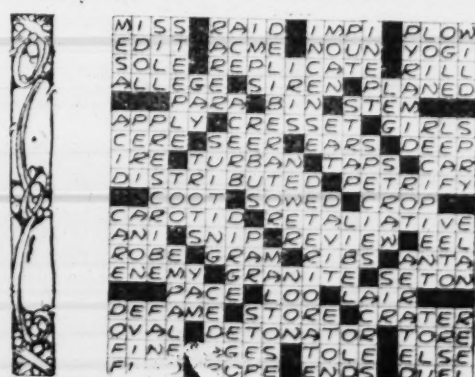 MISS RAID IMPI PLOW
EDIT ACME NOUN YOGI
SOLE REPLICATE RILL
ALLEGE SIREN PLANED
PARA BIN STEM
APPLY CRESSET GIRLS
CERE SEER EARS DEEP
IRE TURBAN TAPS CAR
DISTRIBUTED PETRIFY
COOT SOWED CROP
CAROTID RETALIATIVE
ANI SNIP REVIEW EEL
ROBE GRAM RIBS ANTA
ENEMY GRANITE SETON
PACE LOO LAIR
DEFAME STORE CRATER
OVAL DETONATOR TORE
FINE GES TOLE ELSE
ENDS DUEL